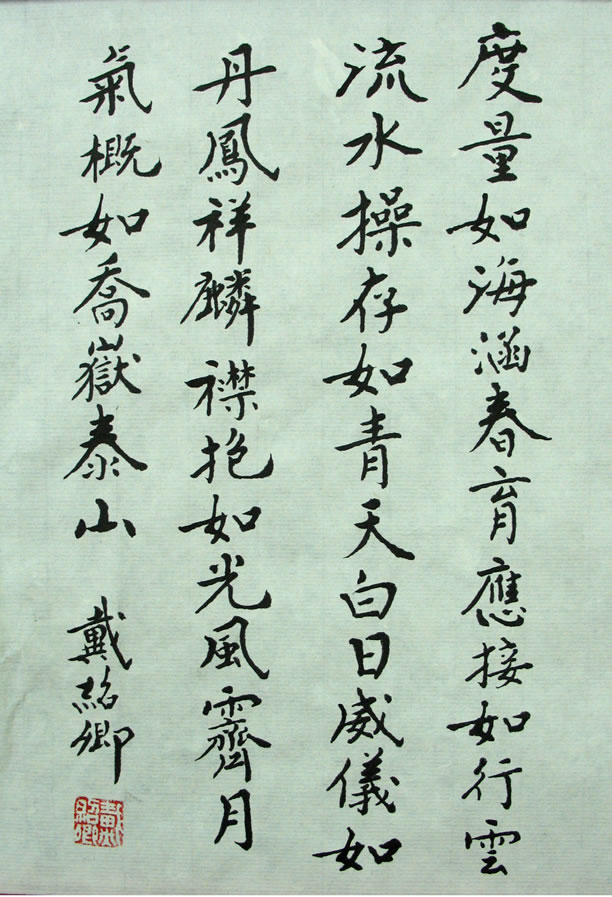 度量如海涵春育應接如行雲
流水操存如青天白日威儀如
丹鳳祥麟襟抱如光風霽月
氣概如喬嶽泰山
戴紹卿
戴紹卿